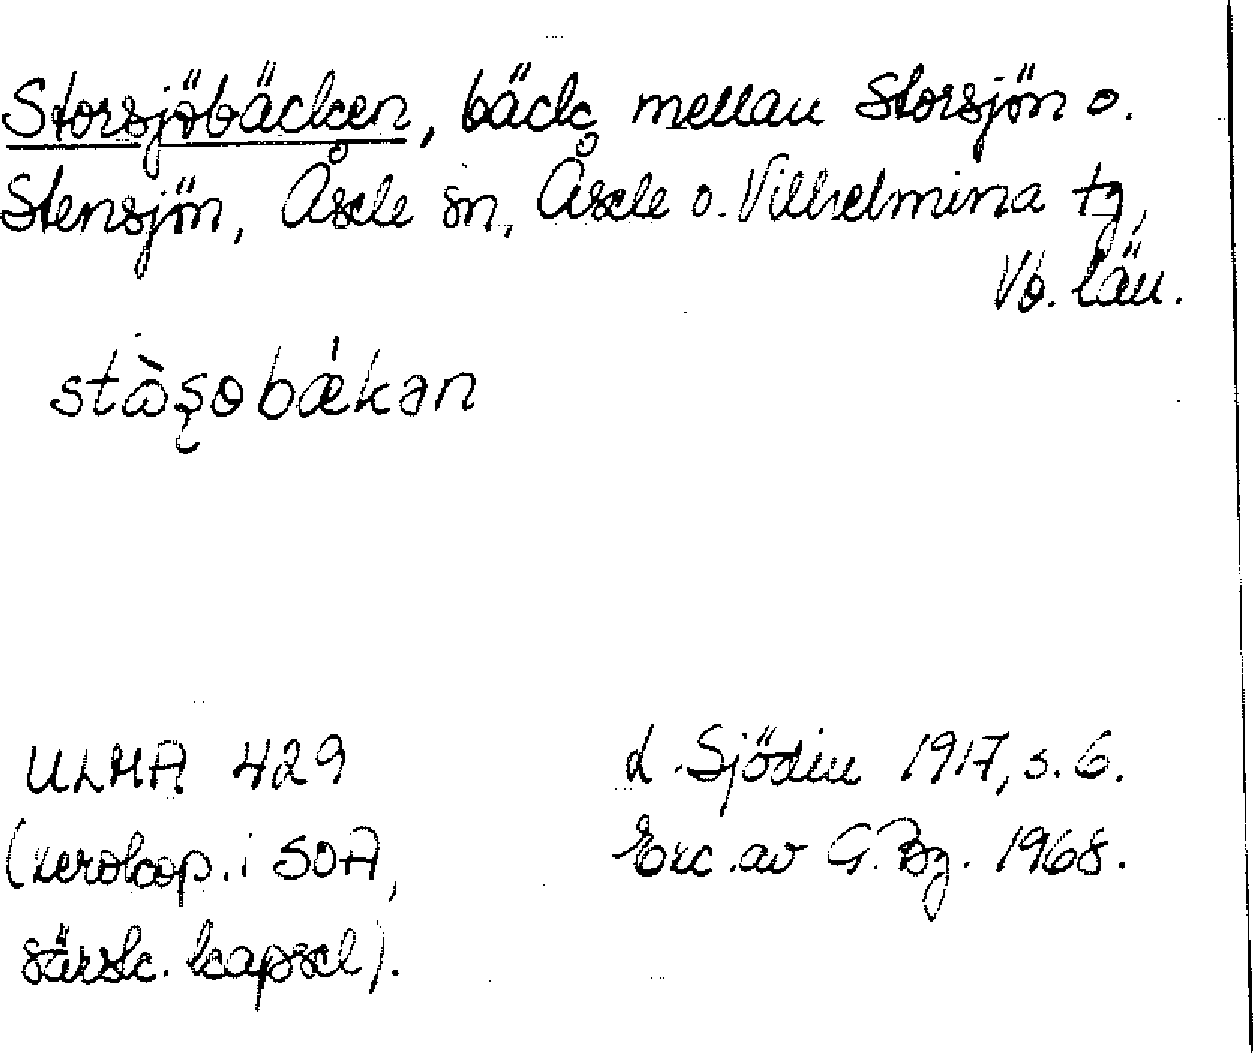 Storsjöbäcken, bäck mellan Storsjön o.
Stensjön, Åsele sn, Åsele o. Vilhelmina tg,
Vb. län.
ULMA 429
(xerokop. i SOA,
särsk. kapsel).
L. Sjödin 1917, s. 6.
Exc. av G. Bg. 1968.